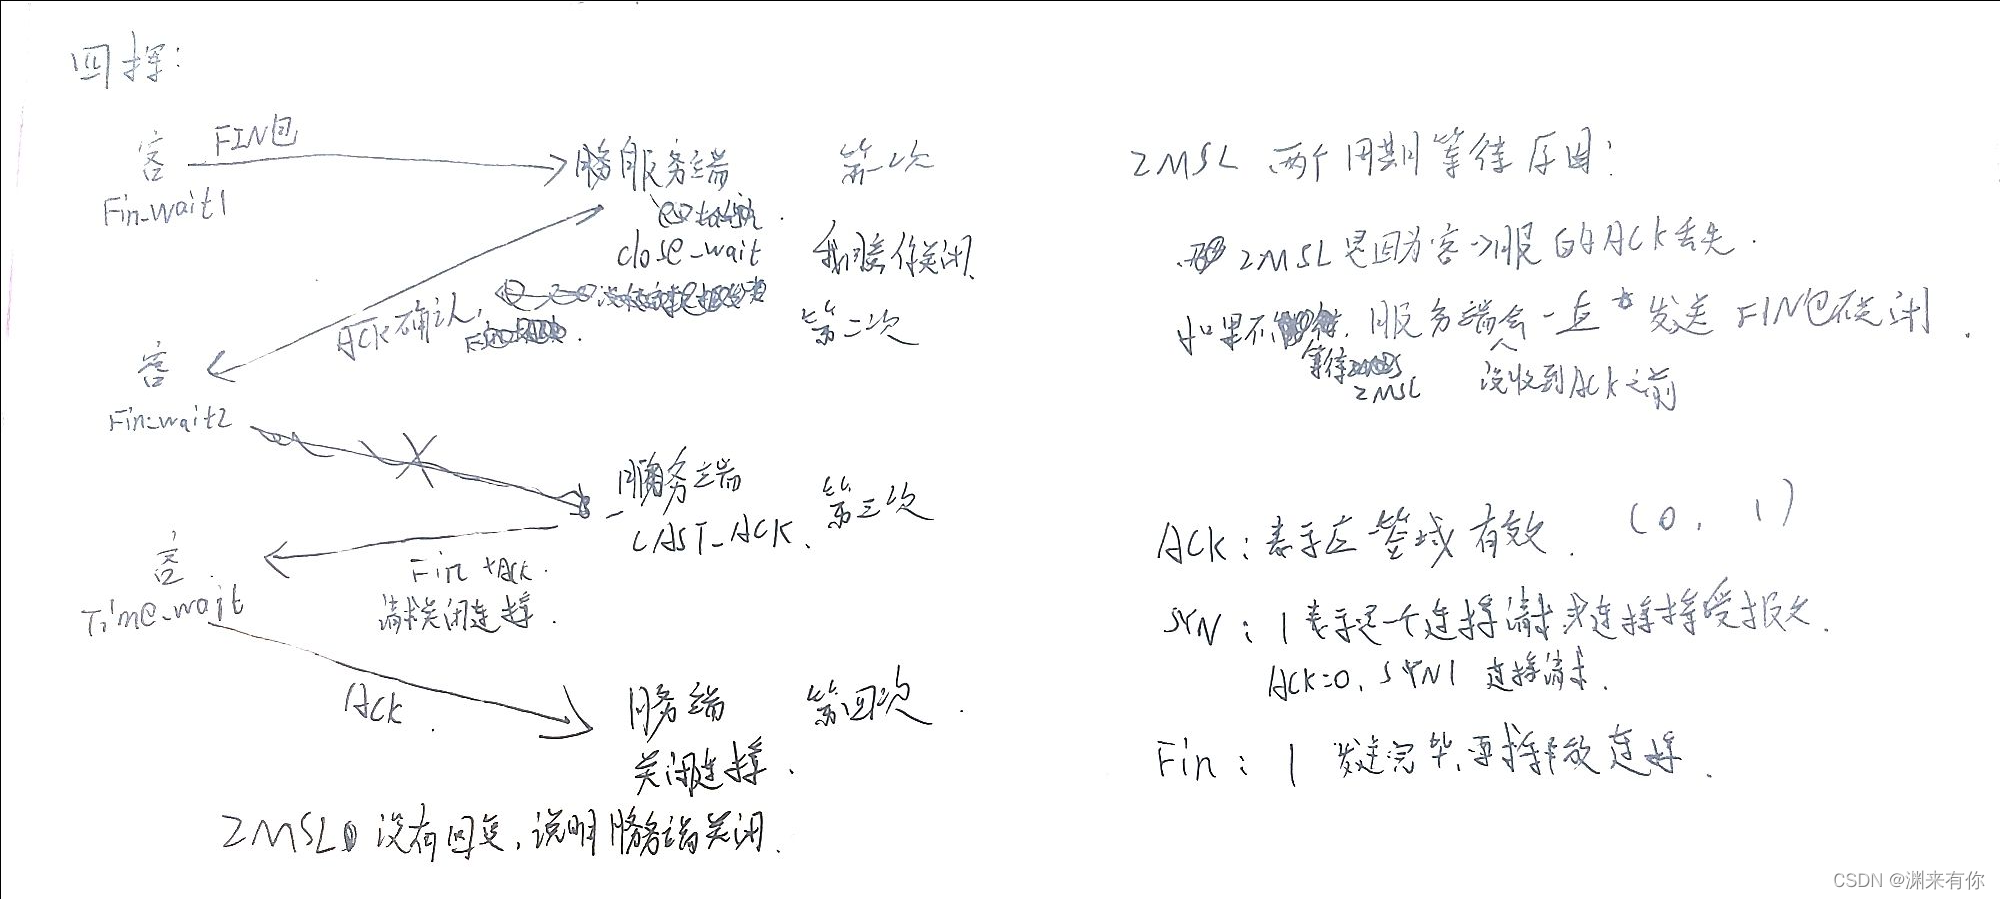 四挥:
客 FIN包 服务端 第一次
Fin_wait1
close_wait 我同意你关闭.
ACK 确认, 第二次
客
Fin_wait2
服务端 第三次
LAST_ACK.
客
Fin +Ack.
Time_wait
请求关闭连接.
ACK
服务端 第四次.
关闭连接.
2MSL 没有回复,说明服务端关闭.
2MSL 两个周期等待原因:
2MSL是因为客->服的ACK丢失.
如果不 服务端会一直发送 FIN包在关闭.
等待
2MSL 没收到ACK之前
ACK: 表示应答域有效. (0, 1)
SYN: 1 表示是一个连接请求 连接接受报文.
ACK=0, SYN1 连接请求.
Fin: 1 发送完毕,要求释放连接.
CSDN @渊来有你